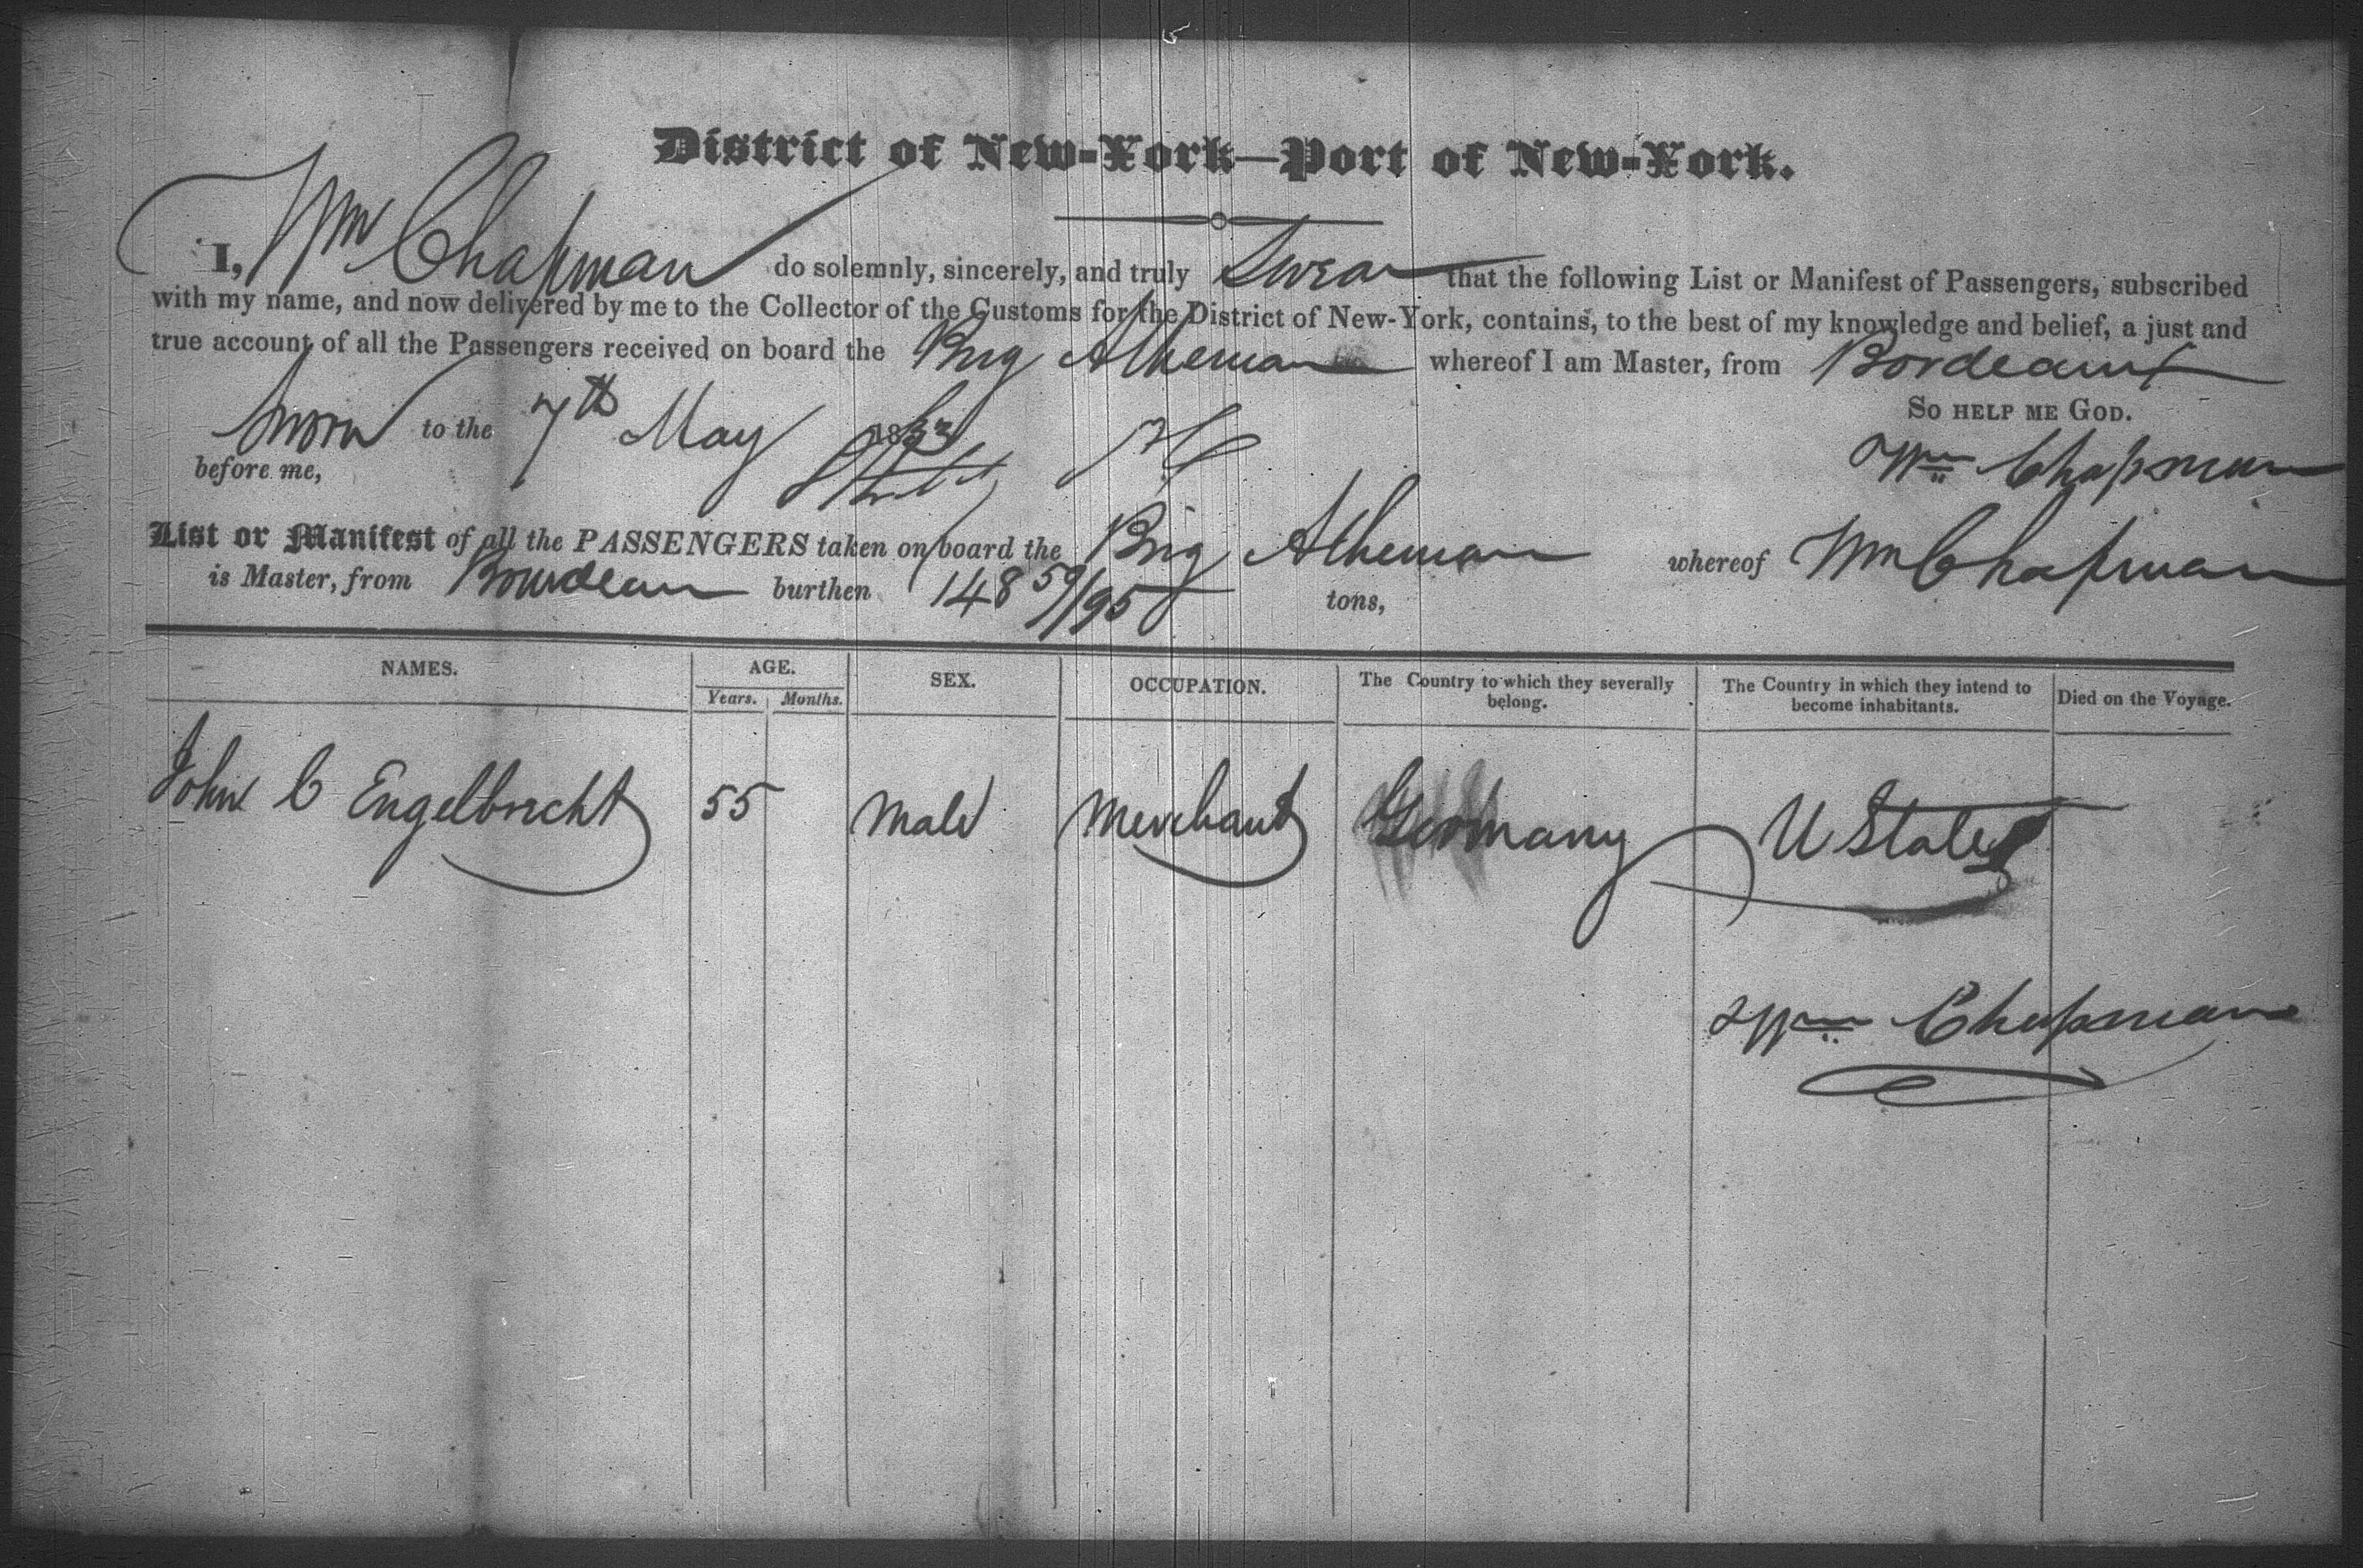 District of New-York—Port of New-York.
I, Wm Chapman do solemnly, sincerely, and truly Swear that the following List or Manifest of Passengers, subscribed
with my name, and now delivered by me to the Collector of the Customs for the District of New-York, contains, to the best of my knowledge and belief, a just and
true account of all the Passengers received on board the Brig Athenian whereof I am Master, from Bordeaux
So help me God.
Sworn to the 7th May 183
before me,
Wm Chapman
List or Manifest of all the PASSENGERS taken on board the Brig Athenian whereof Wm Chapman
is Master, from Bourdeau burthen 148 59/95 tons,
NAMES. AGE. SEX. OCCUPATION. The Country to which they severally belong. The Country in which they intend to become inhabitants. Died on the Voyage.
Years. Months.
John C Engelbrecht 55 Male Merchant Germany U States
Wm Chapman